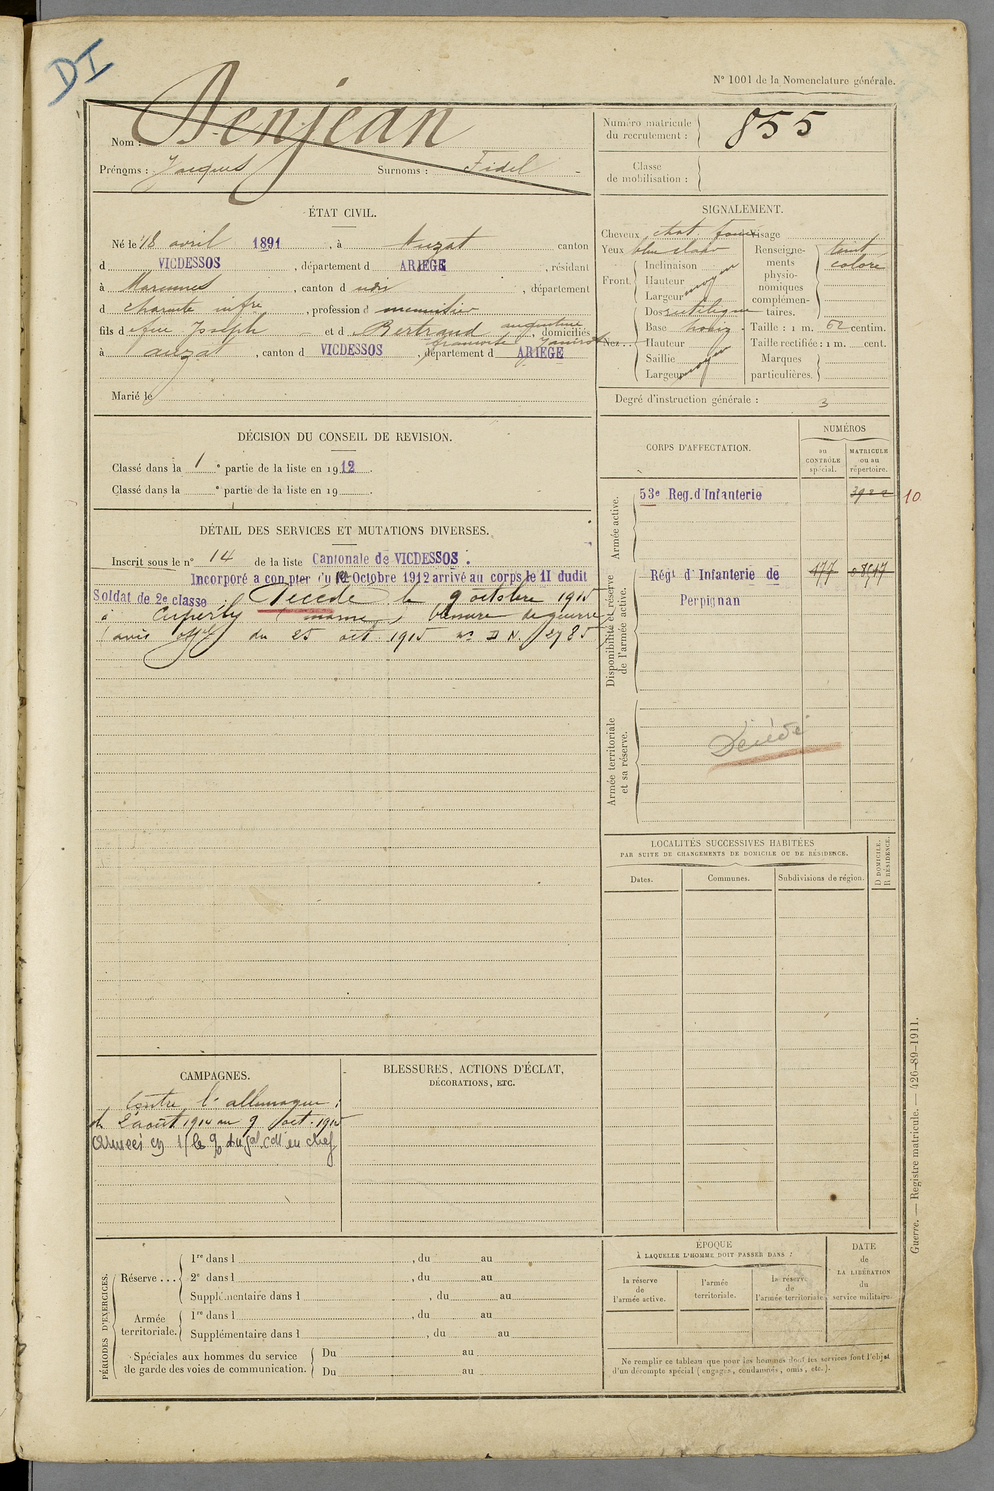 DI
N° 1001 de la Nomenclature générale.
Nom : Denjean
Prénoms : Jacques Surnoms : Fidel
Numéro matricule du recrutement : 855
Classe de mobilisation :
ÉTAT CIVIL.
Né le 18 avril 1891, à Auzat canton
d VICDESSOS, département d ARIEGE, résidant
à Marennes, canton d udri, département
d charente infre, profession d menuisier
fils d e feu Joseph et d Bertrand augustine, domiciliés
à auzat, canton d VICDESSOS, département d ARIEGE
Marié le
SIGNALEMENT.
Cheveux chat foncé Visage
Yeux bleu clair
Front. Inclinaison
Hauteur moyen
Largeur
Nez... Dos rectiligne
Base horiz.
Hauteur
Saillie moyen
Largeur
Renseignements physionomiques complémentaires. teint coloré
Taille : 1 m. 62 centim.
Taille rectifiée : 1 m. cent.
Marques particulières.
Degré d'instruction générale : 3
DÉCISION DU CONSEIL DE REVISION.
Classé dans la 1 e partie de la liste en 1912.
Classé dans la e partie de la liste en 19
DÉTAIL DES SERVICES ET MUTATIONS DIVERSES.
Inscrit sous le n° 14 de la liste Cantonale de VICDESSOS.
Incorporé a compter du Octobre 1912 arrivé au corps le 11 dudit
Soldat de 2e classe Décédé le 9 octobre 1915
à Cuperly (marne) blessure de guerre
(avis offel du 25 oct 1915 n° D N. 2785
CORPS D'AFFECTATION.
NUMÉROS
au CONTRÔLE spécial.
MATRICULE ou au répertoire.
Armée active.
53e Reg. d'Infanterie
10
Disponibilité et réserve de l'armée active.
Régt d'Infanterie de 477
Perpignan
Armée territoriale et sa réserve.
Décédé
LOCALITÉS SUCCESSIVES HABITÉES
PAR SUITE DE CHANGEMENTS DE DOMICILE OU DE RÉSIDENCE.
Dates. Communes. Subdivisions de région. D DOMICILE. R RÉSIDENCE.
CAMPAGNES.
Contre l'allemagne :
du 2 août 1914 au 9 oct. 1915
BLESSURES, ACTIONS D'ÉCLAT,
DÉCORATIONS, ETC.
PÉRIODES D'EXERCICES.
Réserve ... 1re dans l , du au
2e dans l , du au
Supplémentaire dans l , du au
Armée territoriale. 1re dans l , du au
Supplémentaire dans l , du au
Spéciales aux hommes du service de garde des voies de communication. Du au
Du au
ÉPOQUE
À LAQUELLE L'HOMME DOIT PASSER DANS :
la réserve de l'armée active.
l'armée territoriale.
la réserve de l'armée territoriale.
DATE de LA LIBÉRATION du service militaire.
Ne remplir ce tableau que pour les hommes dont les services font l'objet
d'un décompte spécial (engagés, condamnés, omis, etc.).
Guerre. — Registre matricule. — 426-89-1911.